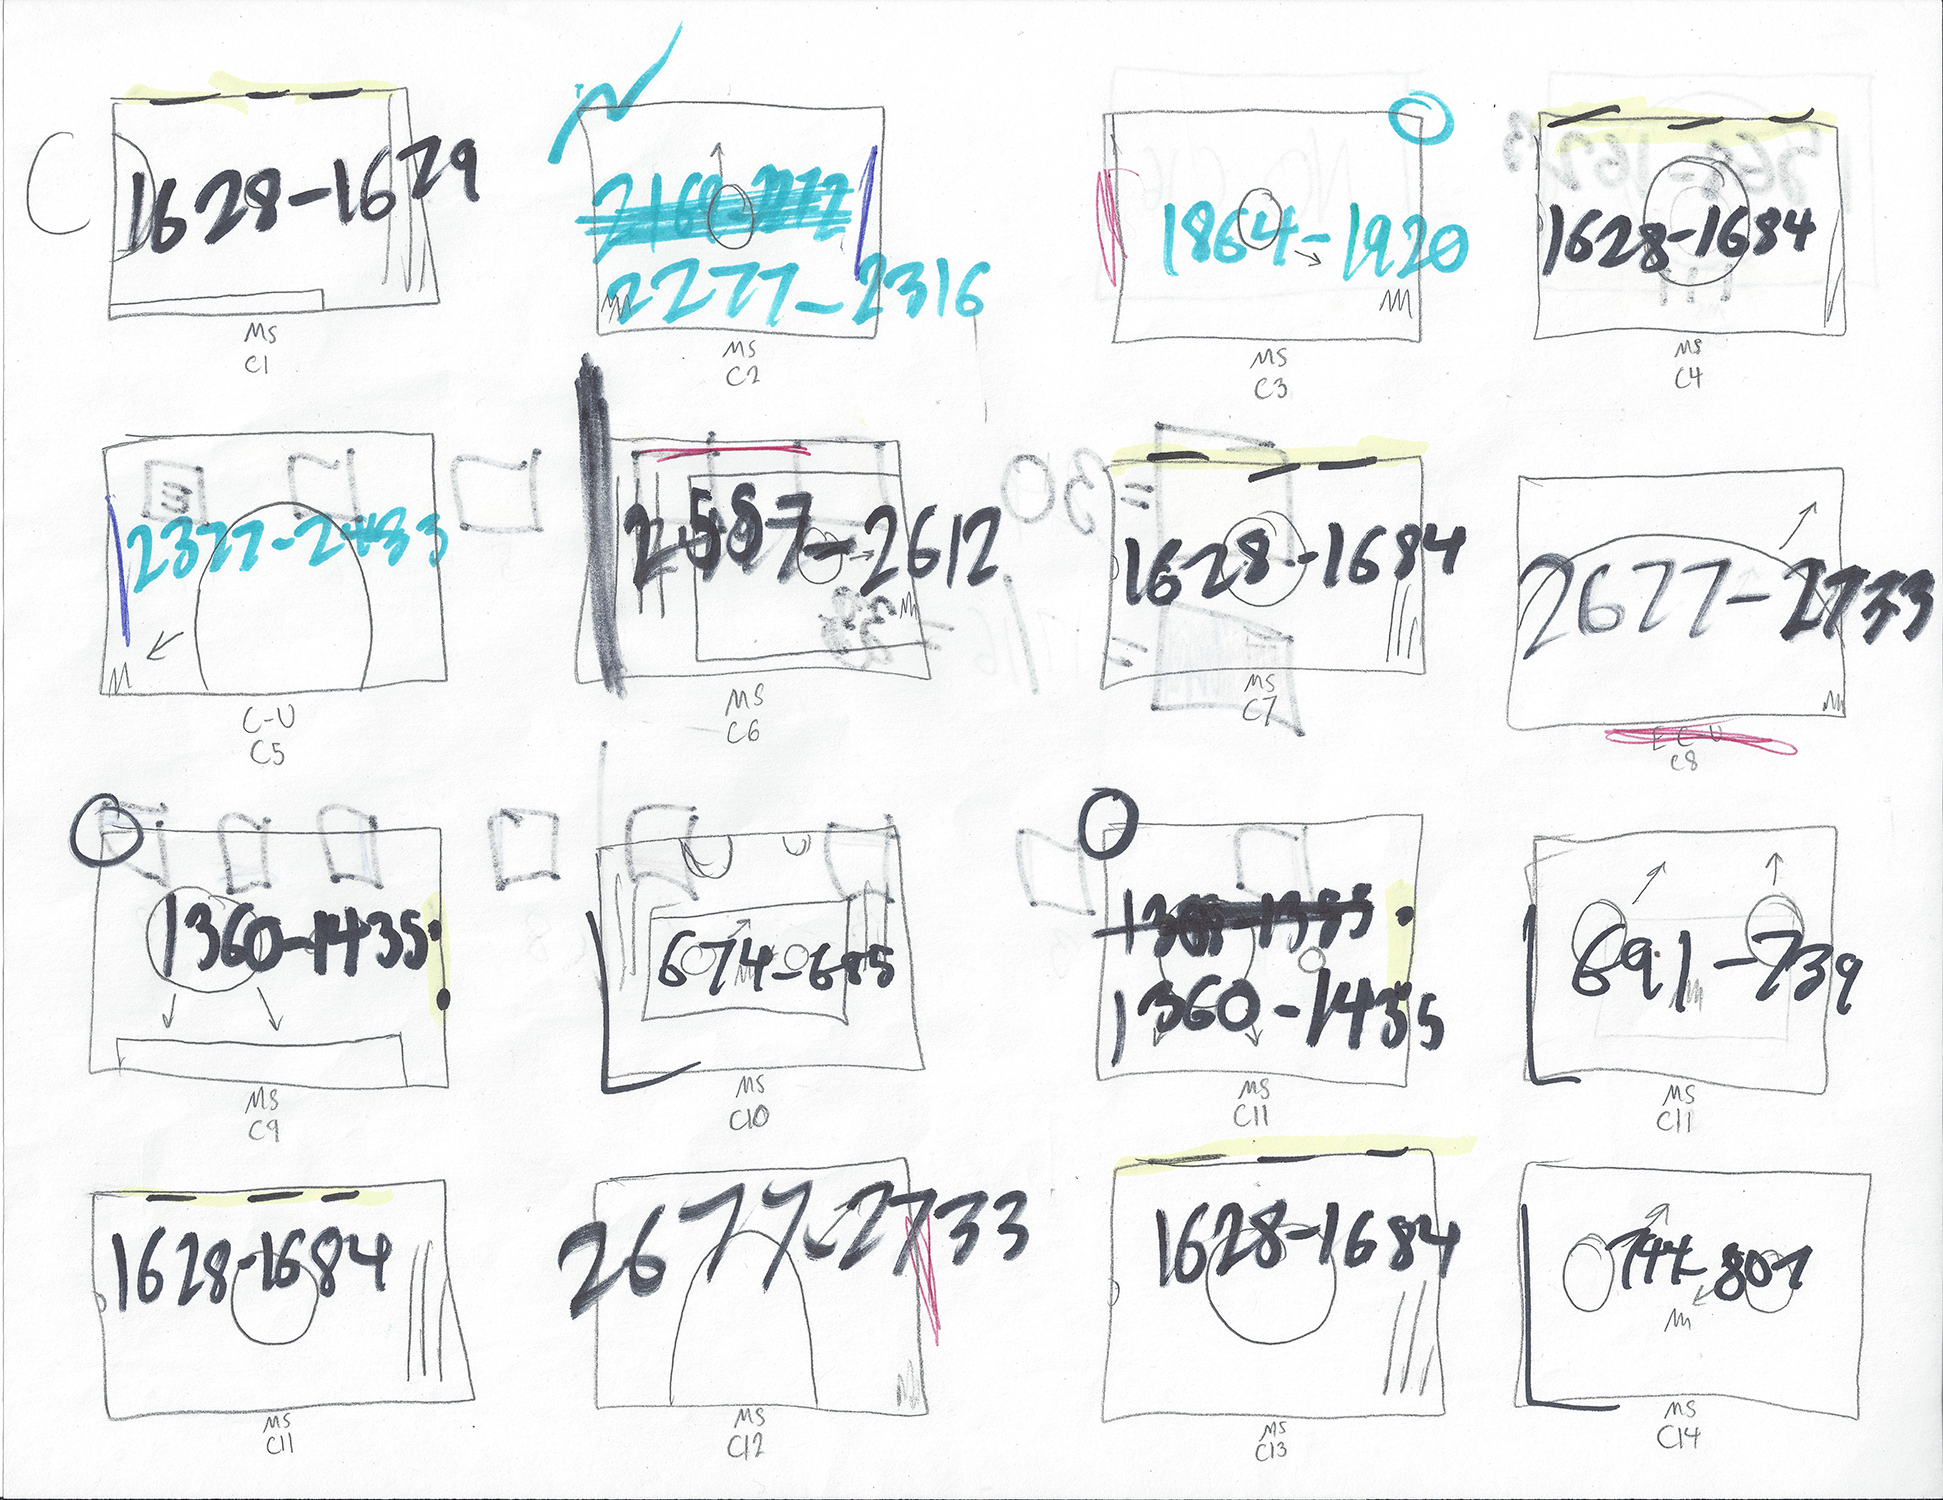 C
1628-1629
MS
C1
2277-2316
MS
C2
1864-1920
MS
C3
1628-1684
MS
C4
2377-2483
C-U
C5
2587-2612
MS
C6
1628-1684
MS
C7
2677-2733
E C-U
C8
1360-1435
MS
C9
674-685
MS
C10
1360-1435
MS
C11
691-739
MS
C11
1628-1684
MS
C11
2677-2733
MS
C12
1628-1684
MS
C13
744-807
MS
C14